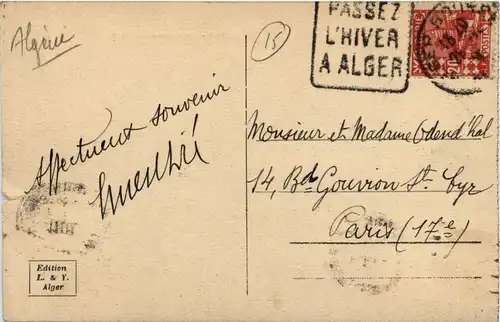 Algérie
15
PASSEZ
L'HIVER
A ALGER
POSTES
Affectueux souvenir
Monsieur et Madame Odend'hal
14, Bd Gouvion St. Cyr
Paris (17e)
Edition
L. & Y.
Alger